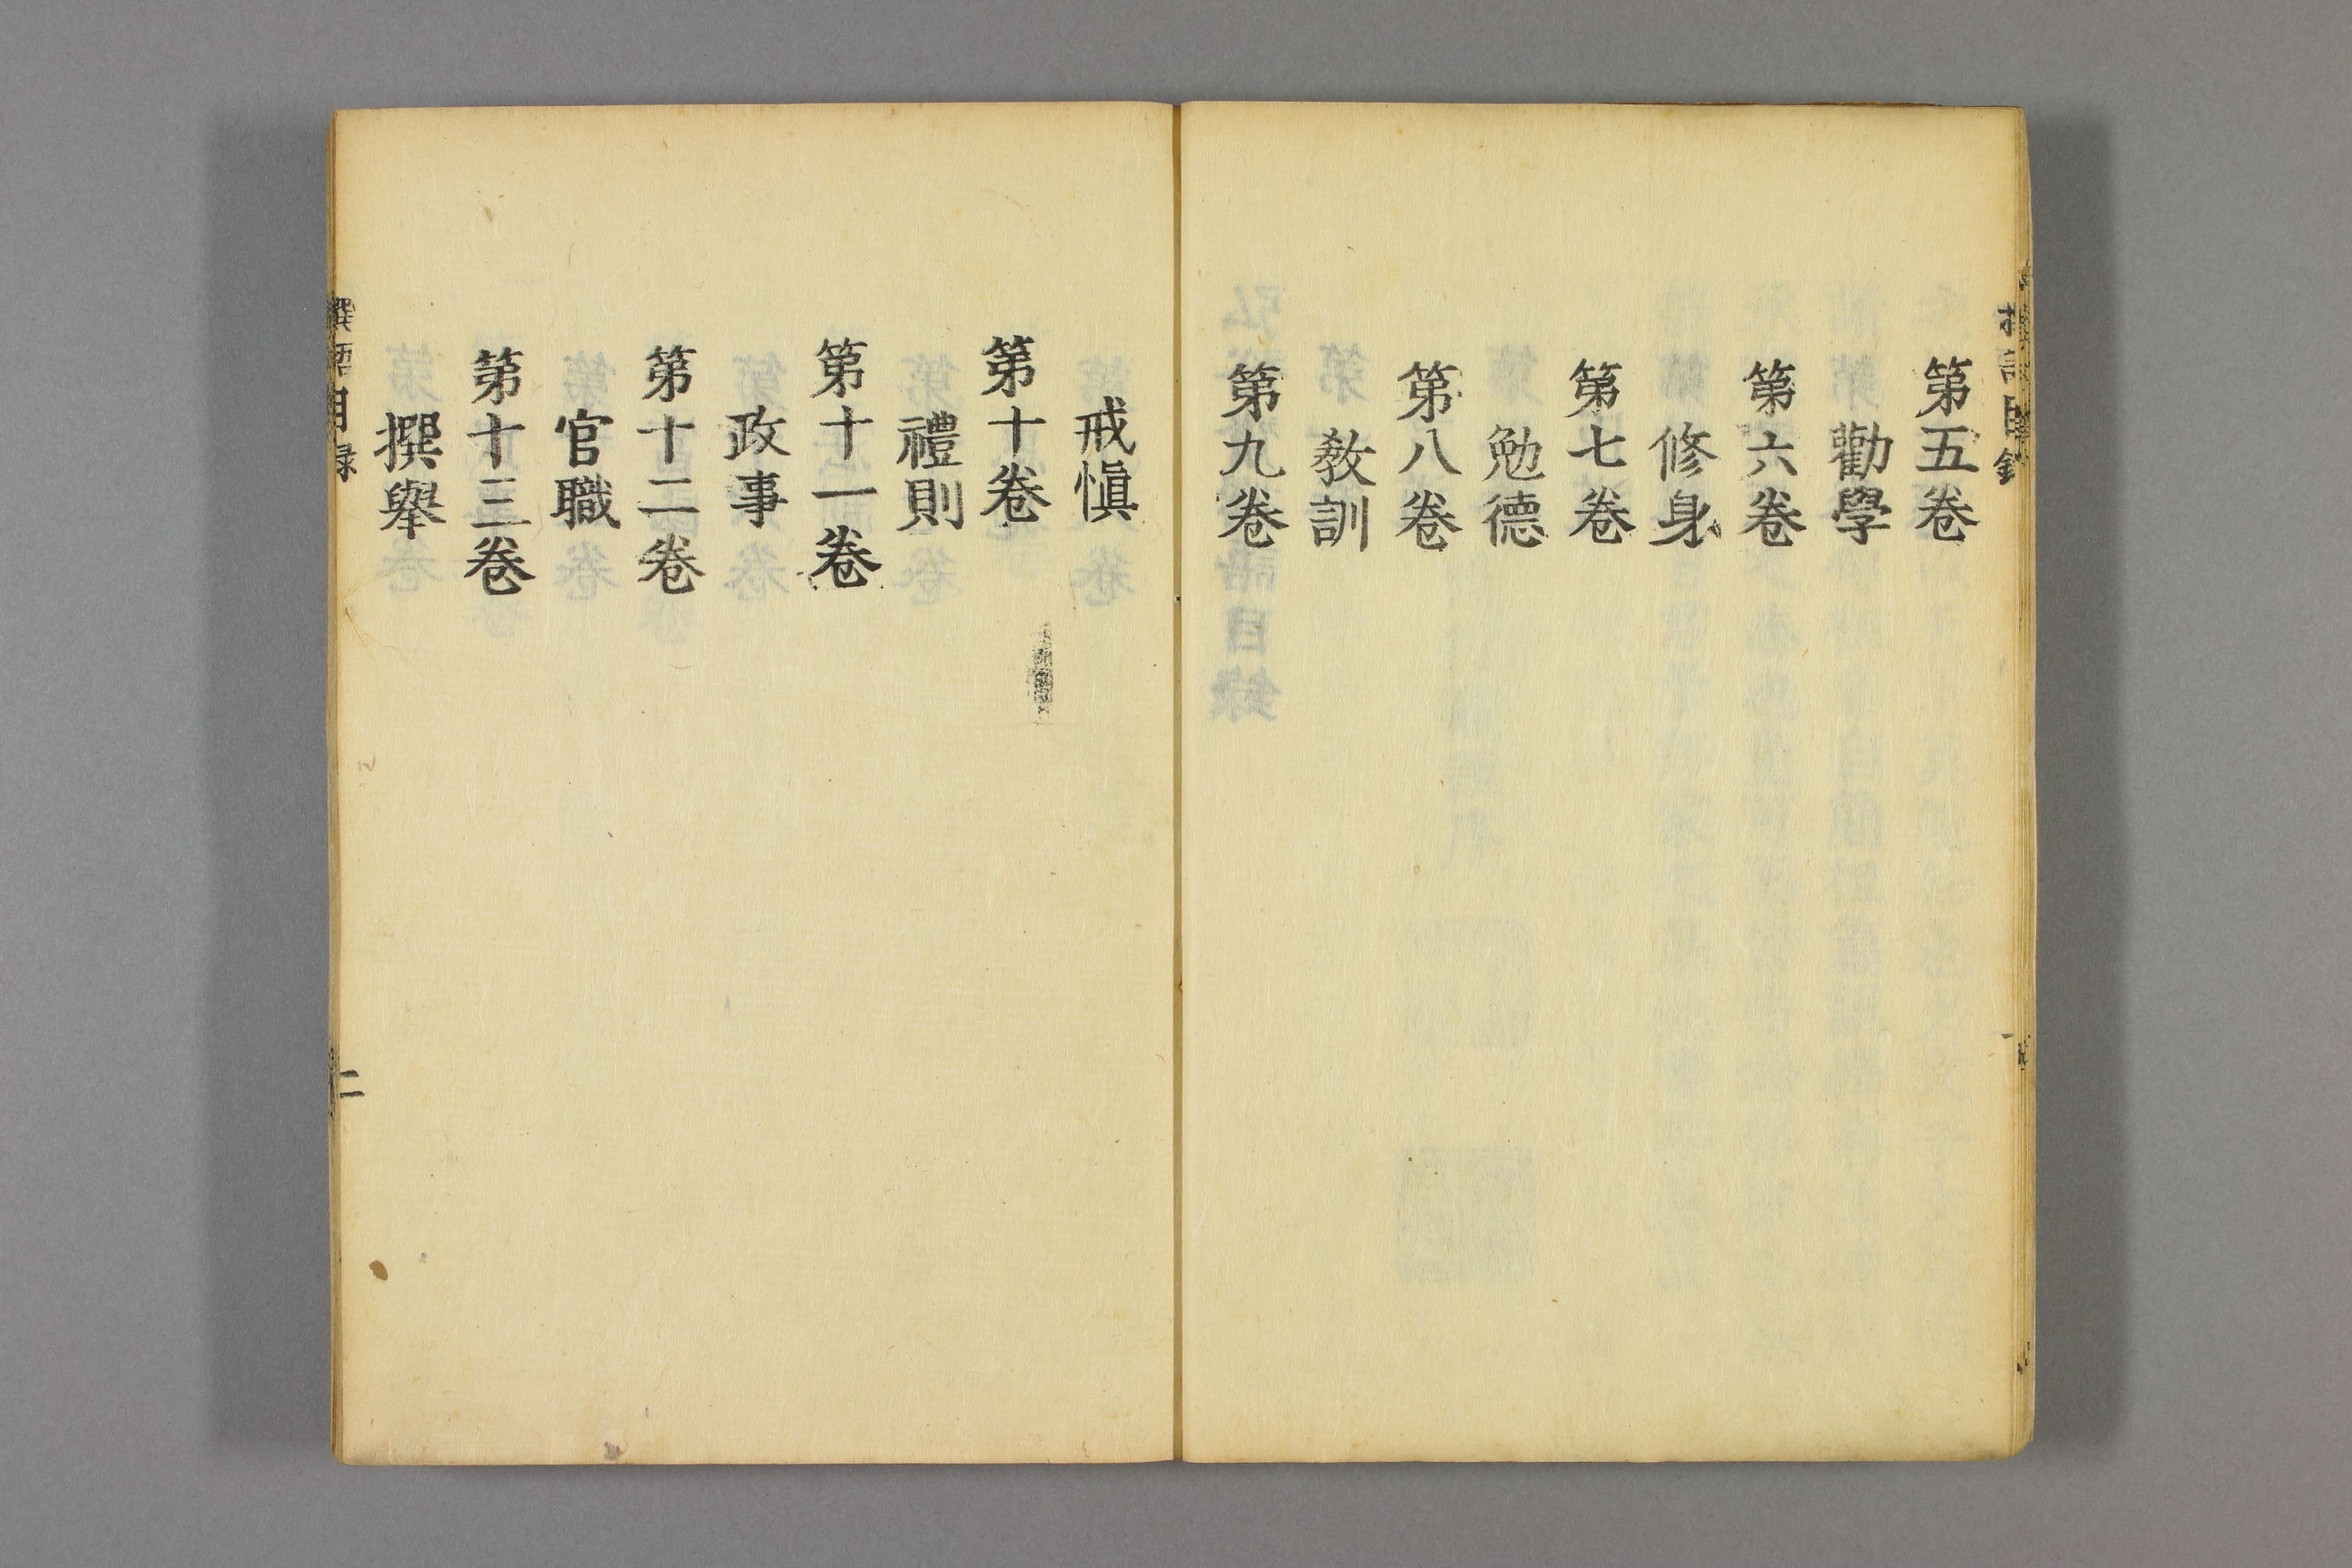 第五卷
勸學
第六卷
修身
第七卷
勉德
第八卷
教訓
第九卷
戒愼
第十卷
禮則
第十一卷
政事
第十二卷
官職
第十三卷
撰舉
撰語目録
二